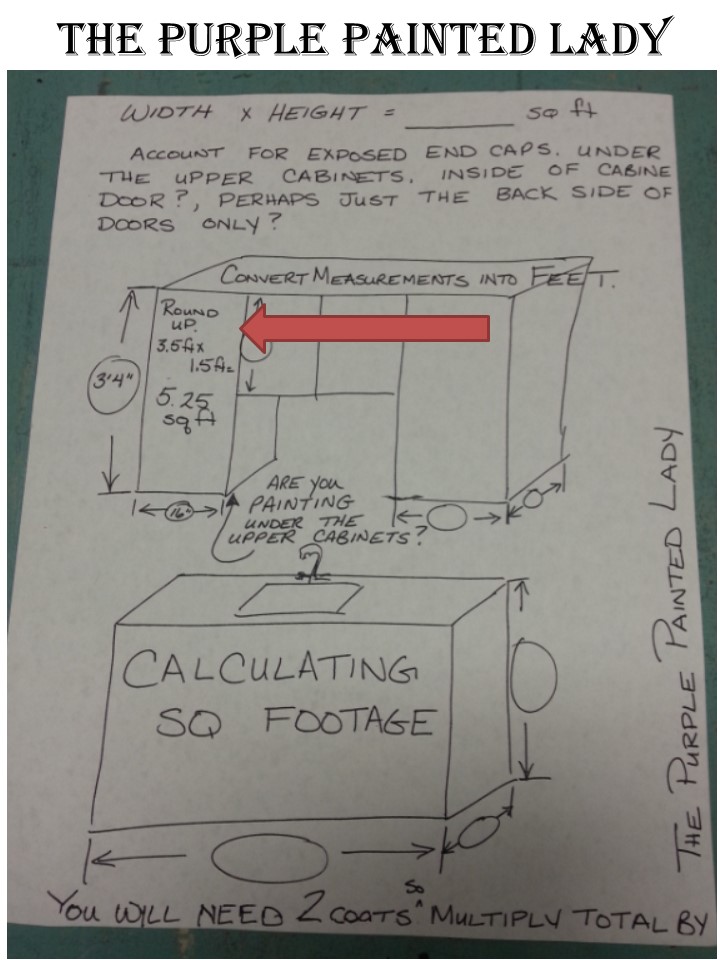 THE PURPLE PAINTED LADY
WIDTH x HEIGHT = ________ SQ ft
ACCOUNT FOR EXPOSED END CAPS. UNDER
THE UPPER CABINETS. INSIDE OF CABINE
DOOR?, PERHAPS JUST THE BACK SIDE OF
DOORS ONLY?
CONVERT MEASUREMENTS INTO FEET.
ROUND
UP.
3.5ft x
1.5ft=
5.25
sq ft
3'4"
16"
ARE YOU
PAINTING
UNDER THE
UPPER CABINETS?
CALCULATING
SQ FOOTAGE
THE PURPLE PAINTED LADY
YOU WILL NEED 2 COATS SO MULTIPLY TOTAL BY